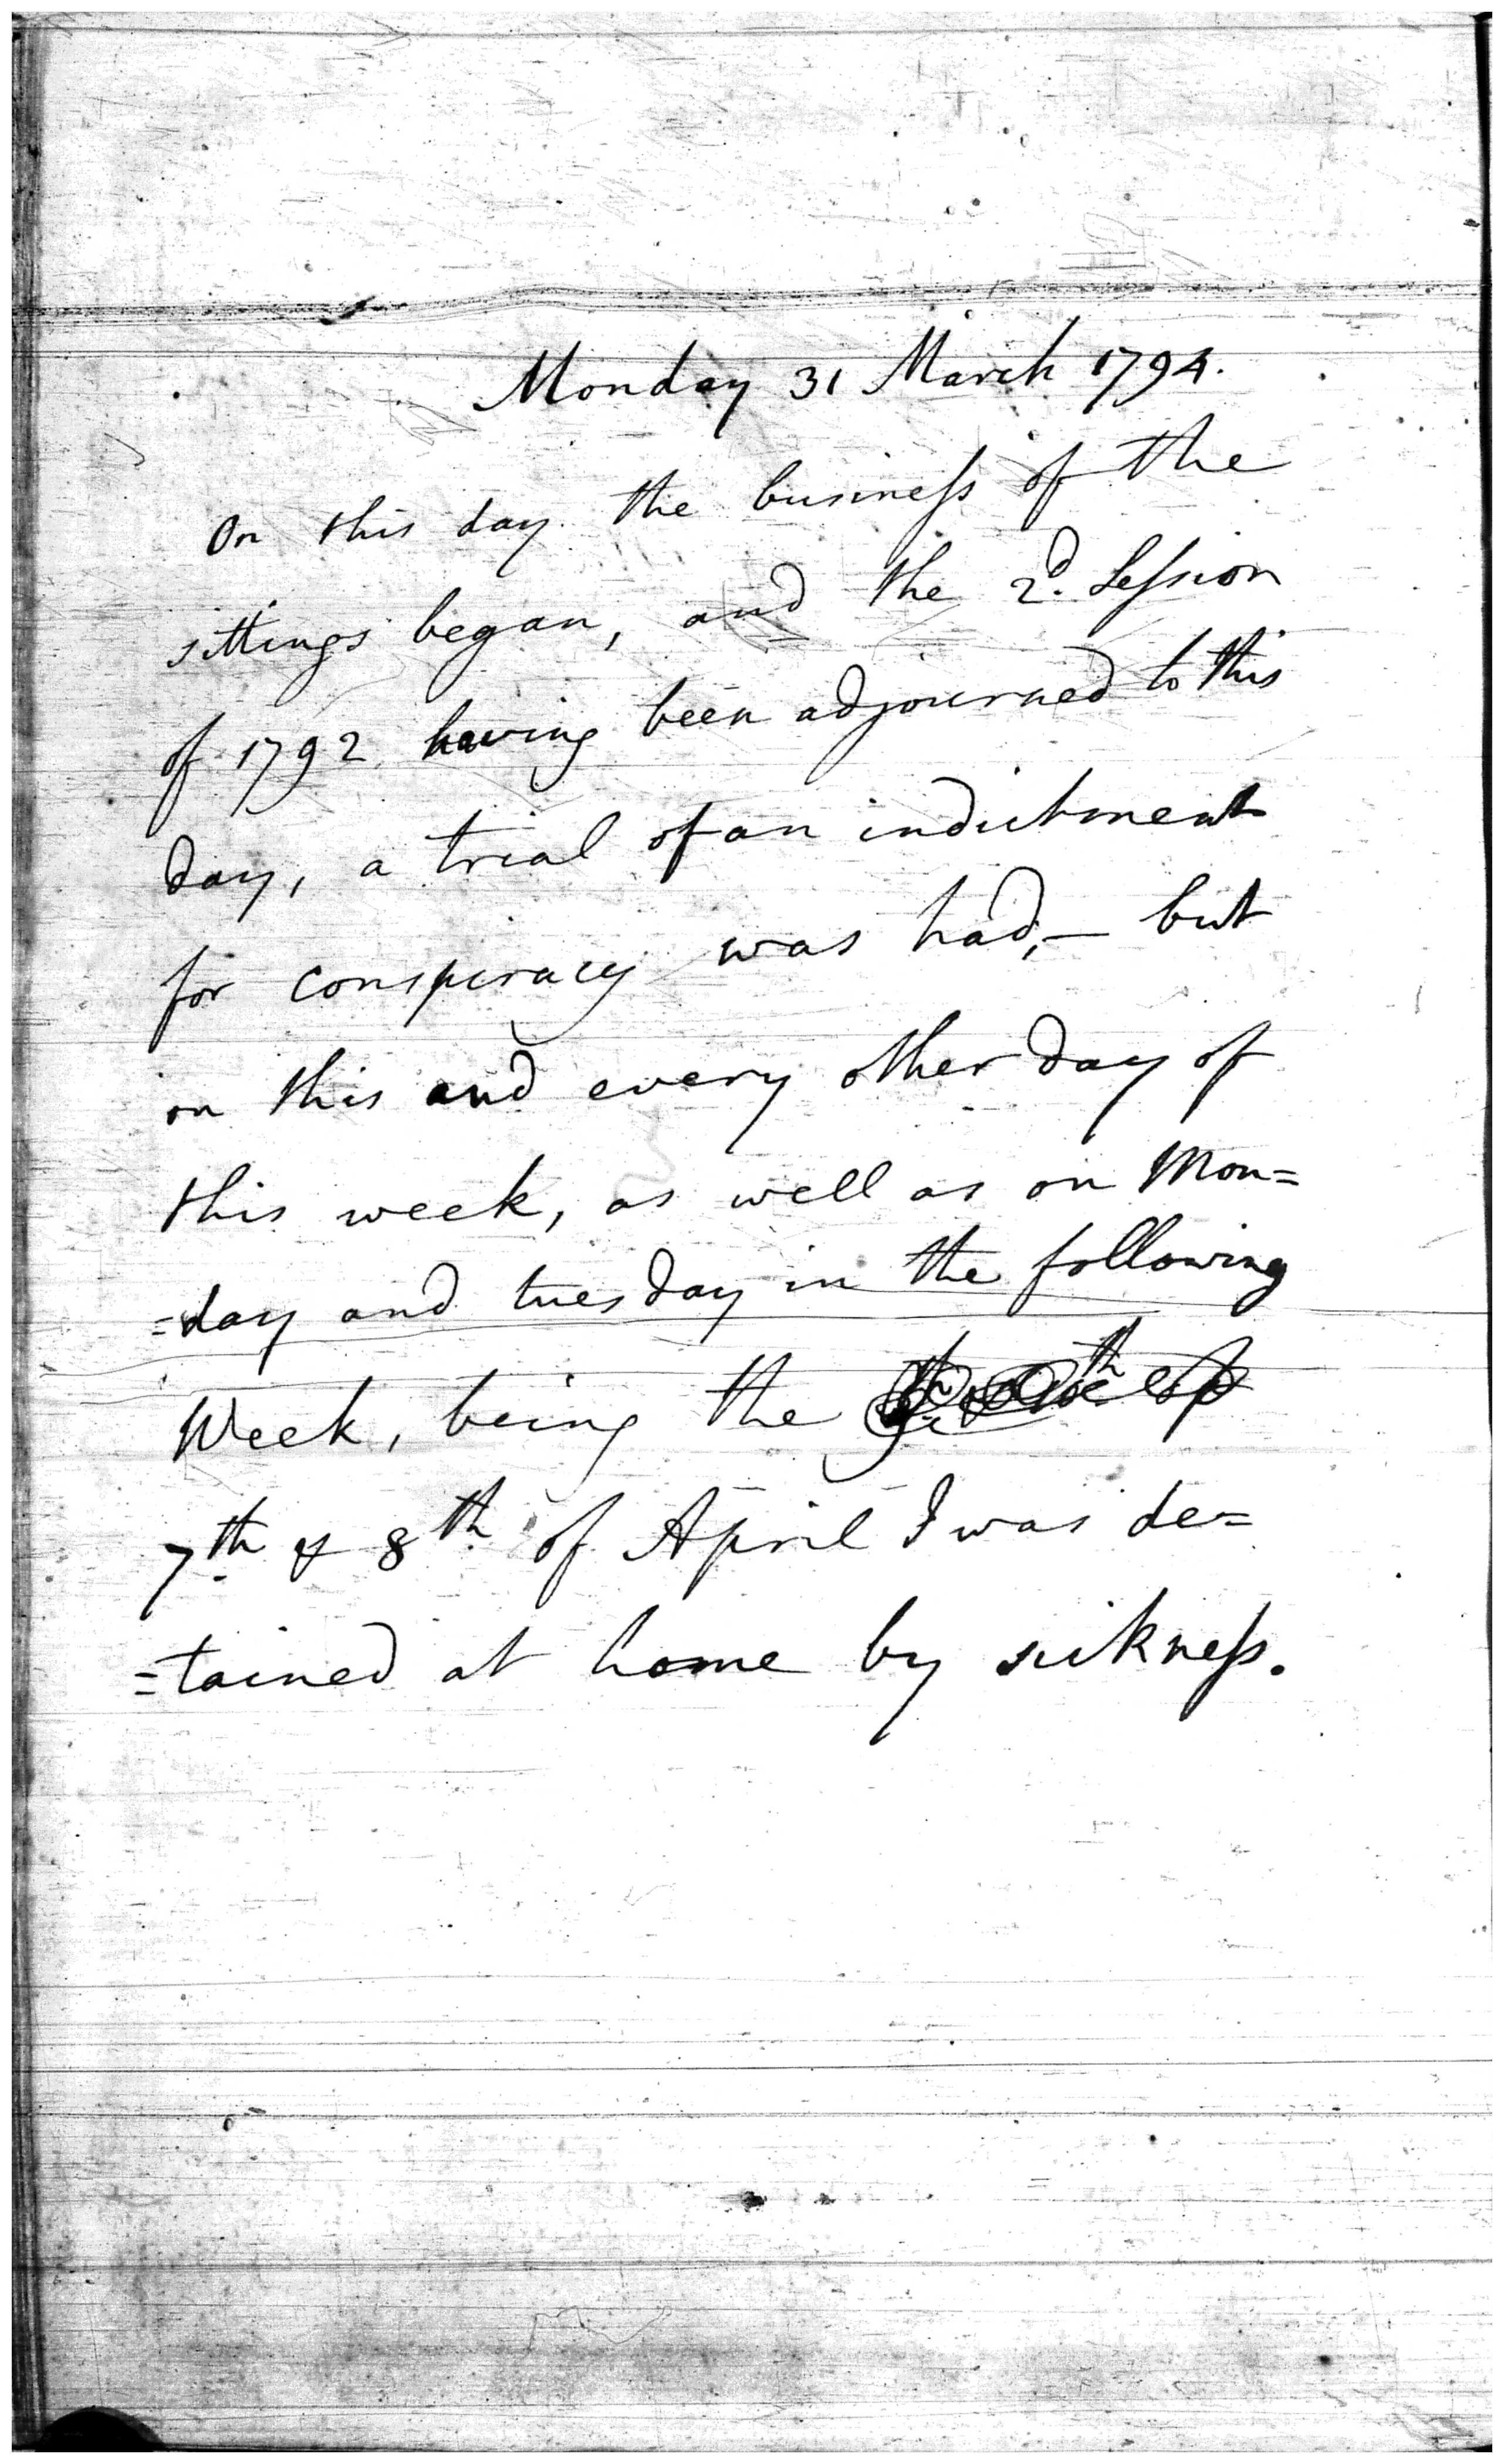 Monday 31 March 1794.
On this day the business of the
sittings began, and the 2d. Session
of 1792 having been adjourned to this
day, a trial of an indictment
for conspiracy was had,— but
on this and every other day of
this week, as well as on Mon=
=day and tuesday in the following
Week, being the
7th & 8th of April I was de=
=tained at home by sickness.